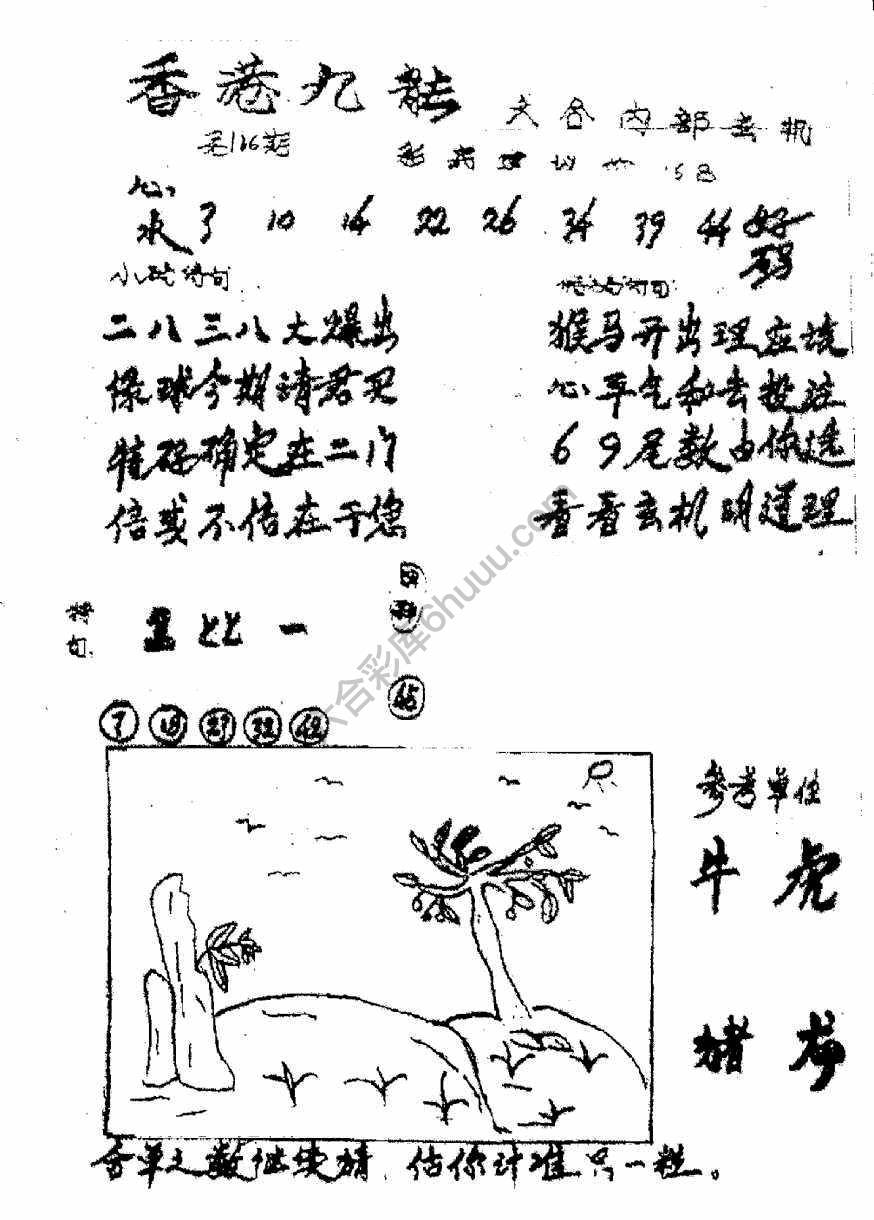 香港九龍
六合内部玄机
第116期
心水 3 10 14 22 26 34 39 44 好码
小玩诗句
二八三八大爆出
绿球今期请君买
特码确定在二门
信或不信在于您
猴马开出理应该
心平气和去投注
6 9尾数由你选
看看玄机明道理
特句
比一
45
7 18 29 32 42
六合彩库6huuu.com
参考单位
牛 虎
猪 龙
合单之数继续猜 估你计准只一粒。